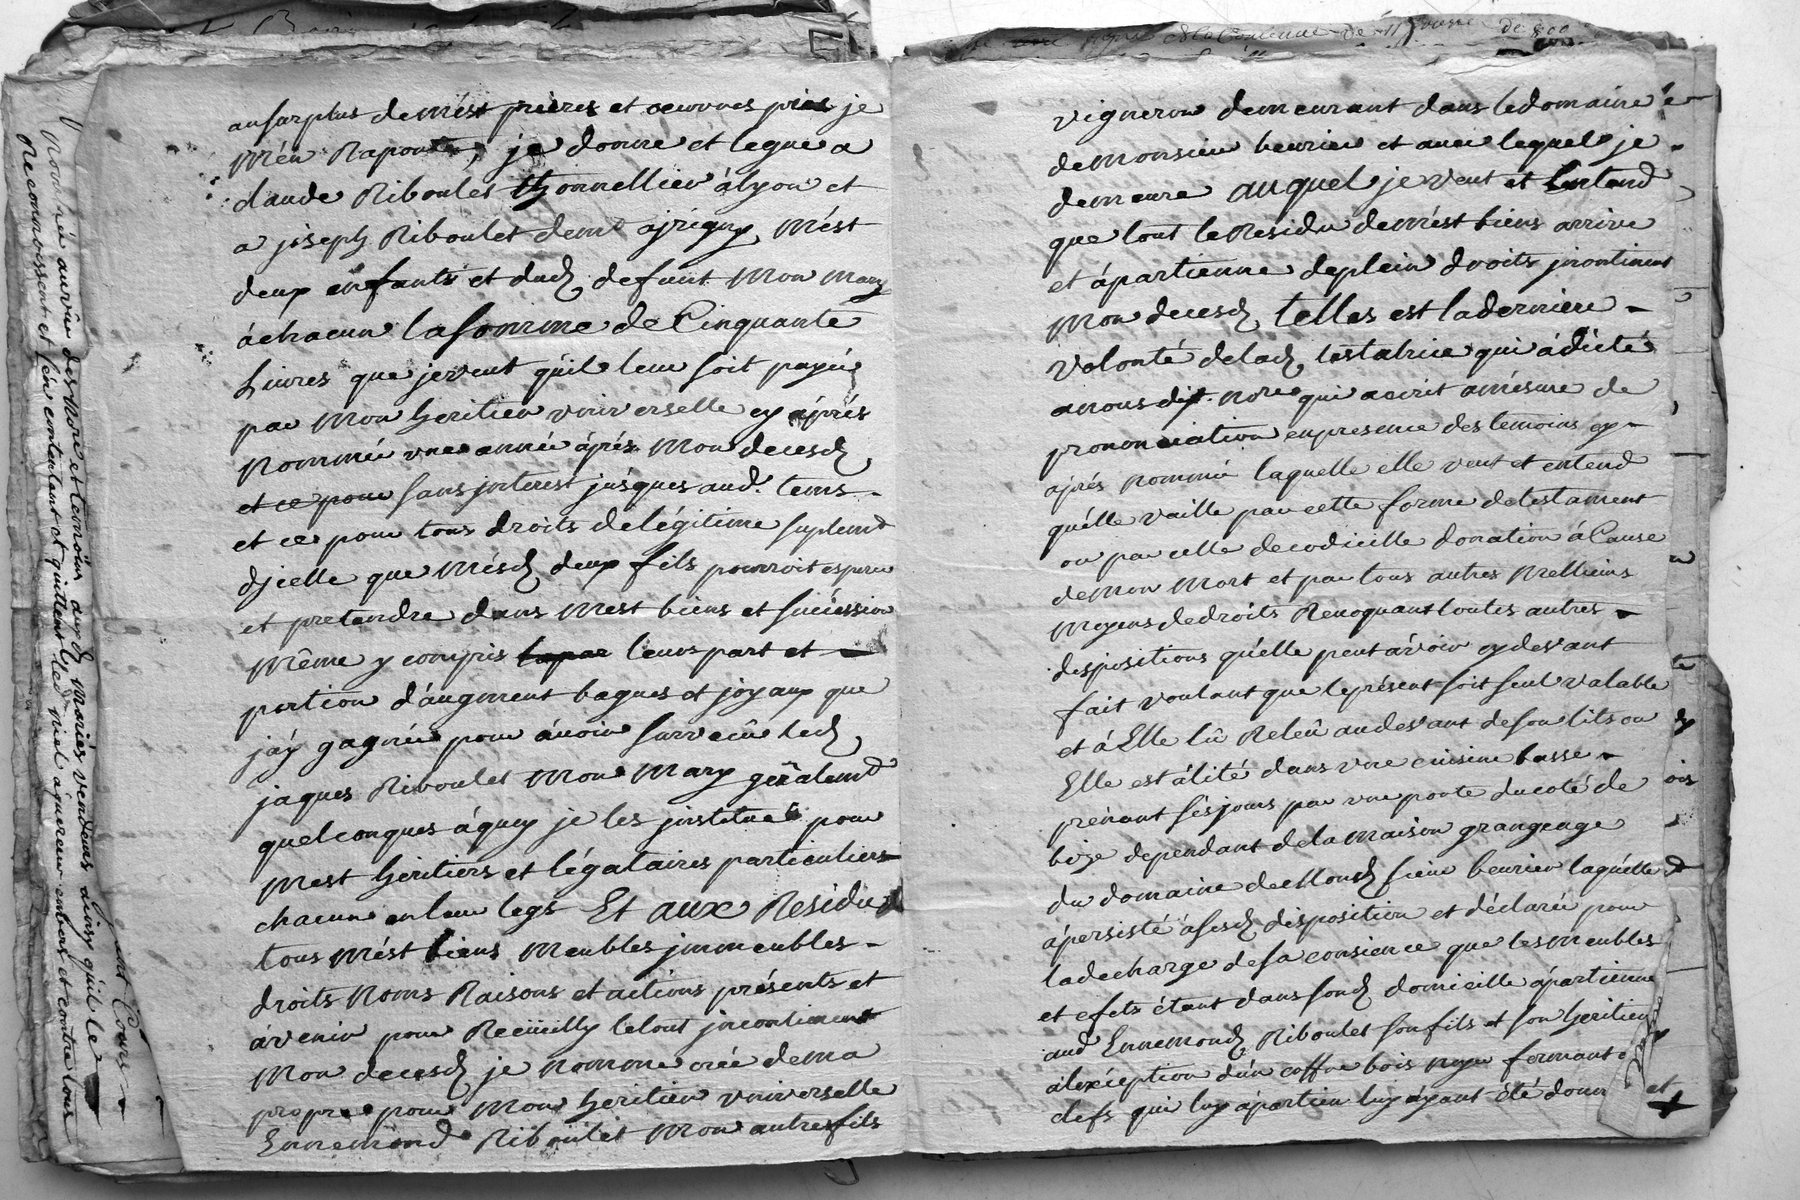 au surplus de mést prieres et oeuvres pies je
m'én raporte, je donne et legue a
claude Riboulet thonnellier à lyon et
a joseph Riboulet demt a jrigny, mést
deux enfants et dud. defunt mon mary
à chacun la somme de Cinquante
Livres que je veut qu'il leur soit payée
par mon heritier vniverselle cy áprés
nommée vne année áprés mon decesd.
et ce pour sans jnterest jusques aud. tems
et ce pour tous droits de légitime suplemt
d'jcelle que mésd. deux fils pourroit esperer
et pretendre dans mest biens et succéssion
même y compris la par leurs part et
portion d'augment bagues et joyaux que
j'aÿ gagnée pour ávoir survecû led.
jaques Riboulet mon mary gñalemt
quelconques áquoy je les jnstitue pour
mest heritiers et légataires particuliers
chacun en leur legs Et aux Residu
tous mést biens meubles jmmeubles
droits noms Raisons et actions présents et
ávenir pour Recüeilly le tout jncontinent
mon decesd. je nomme crée de ma
propre pour mon heritier vniverselle
Ennemond Riboulet mon autre fils
vigneron demeurant dans le domaine
de monsieur beurier et avec lequel je
demeure auquel je veut et Entend
que tout le Residu de mést biens arrive
et ápartienne de plein droits jncontinent
mon decesd. telles est la derniere
volonté de lad. testatrice qui á dicté
a nous dit nore qui a ecrit a mésure de
prononciation en presence des temoins cy
aprés nommé laquelle elle veut et entend
qu'élle vaille par cette forme de testament
ou par celle de codicille donation á Cause
de mon mort et par tous autres melliurs
moyens de droits Revoquant toutes autres
despositions qu'élle peut ávoir cy devant
fait voulant que le présent soit seul valable
et á Elle lû Relû au devant de son lits ou
Elle est álité dans vne cuisine basse
prénant sésjours par vne porte du coté de
bize dependant de la maison grangeage
du domaine de mousd. sieur beurier laquélle
ápersisté á sesd. disposition et déclarée pour
la decharge de sa consience que les meubles
et efets étant dans sond. domicille ápartienne
aud Ennemond. Riboulet son fils et son heritier
álexéption d'un coffre bois noyer fermant a
clefs qui luy ápartien luy áyant été donné
nommé au vûe des nore et temoins auxd. mariés vendeurs ainsy qu'ile le
Reconnoissent et s'én contentant et quittent led.